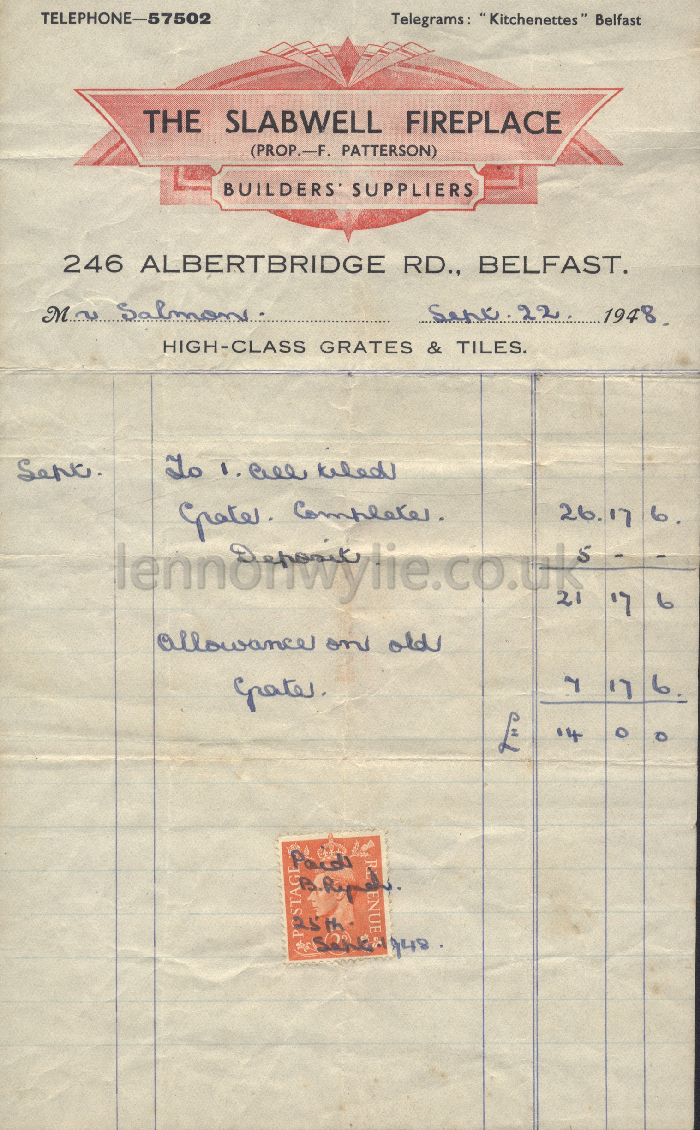 TELEPHONE—57502 Telegrams: "Kitchenettes" Belfast
THE SLABWELL FIREPLACE
(PROP.—F. PATTERSON)
BUILDERS' SUPPLIERS
246 ALBERTBRIDGE RD., BELFAST.
Mr Salmon. Sept. 22. 1948.
HIGH-CLASS GRATES & TILES.
Sept. To 1. All tiled
Grate. Complete. 26. 17 6.
Deposit. 5 - -
lennonwylie.co.uk
21 17 6
Allowance on old
Grate. 7 17 6.
£ 14 0 0
POSTAGE REVENUE
Paid
B.
25th.
Sept. 1948.